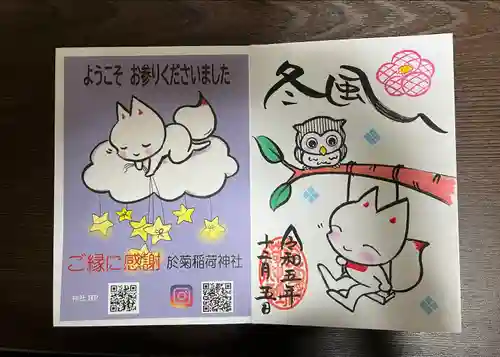 ようこそ お参りくださいました
ご縁に感謝 於菊稲荷神社
冬風
令和五年
十二月五日